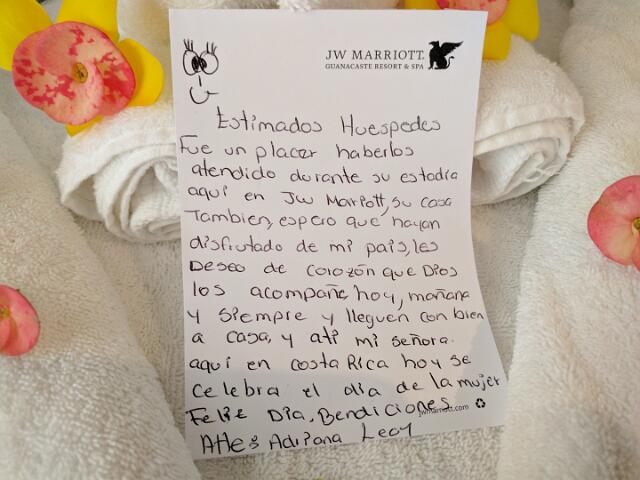 JW MARRIOTT
GUANACASTE RESORT & SPA
Estimados Huespedes
Fue un placer haberlos
atendido durante su estadia
aquí en JW Marriott, su casa
Tambien, espero que hayan
disfrutado de mi pais, les
Deseo de corozón que Dios
los acompañe hoy, mañana
y siempre y lleguen con bien
a casa, y ati mi señora.
aquí en costa Rica hoy se
celebra el dia de la mujer
Feliz Dia, Bendiciones
jwmarriott.com
Atte: Adriana Leal